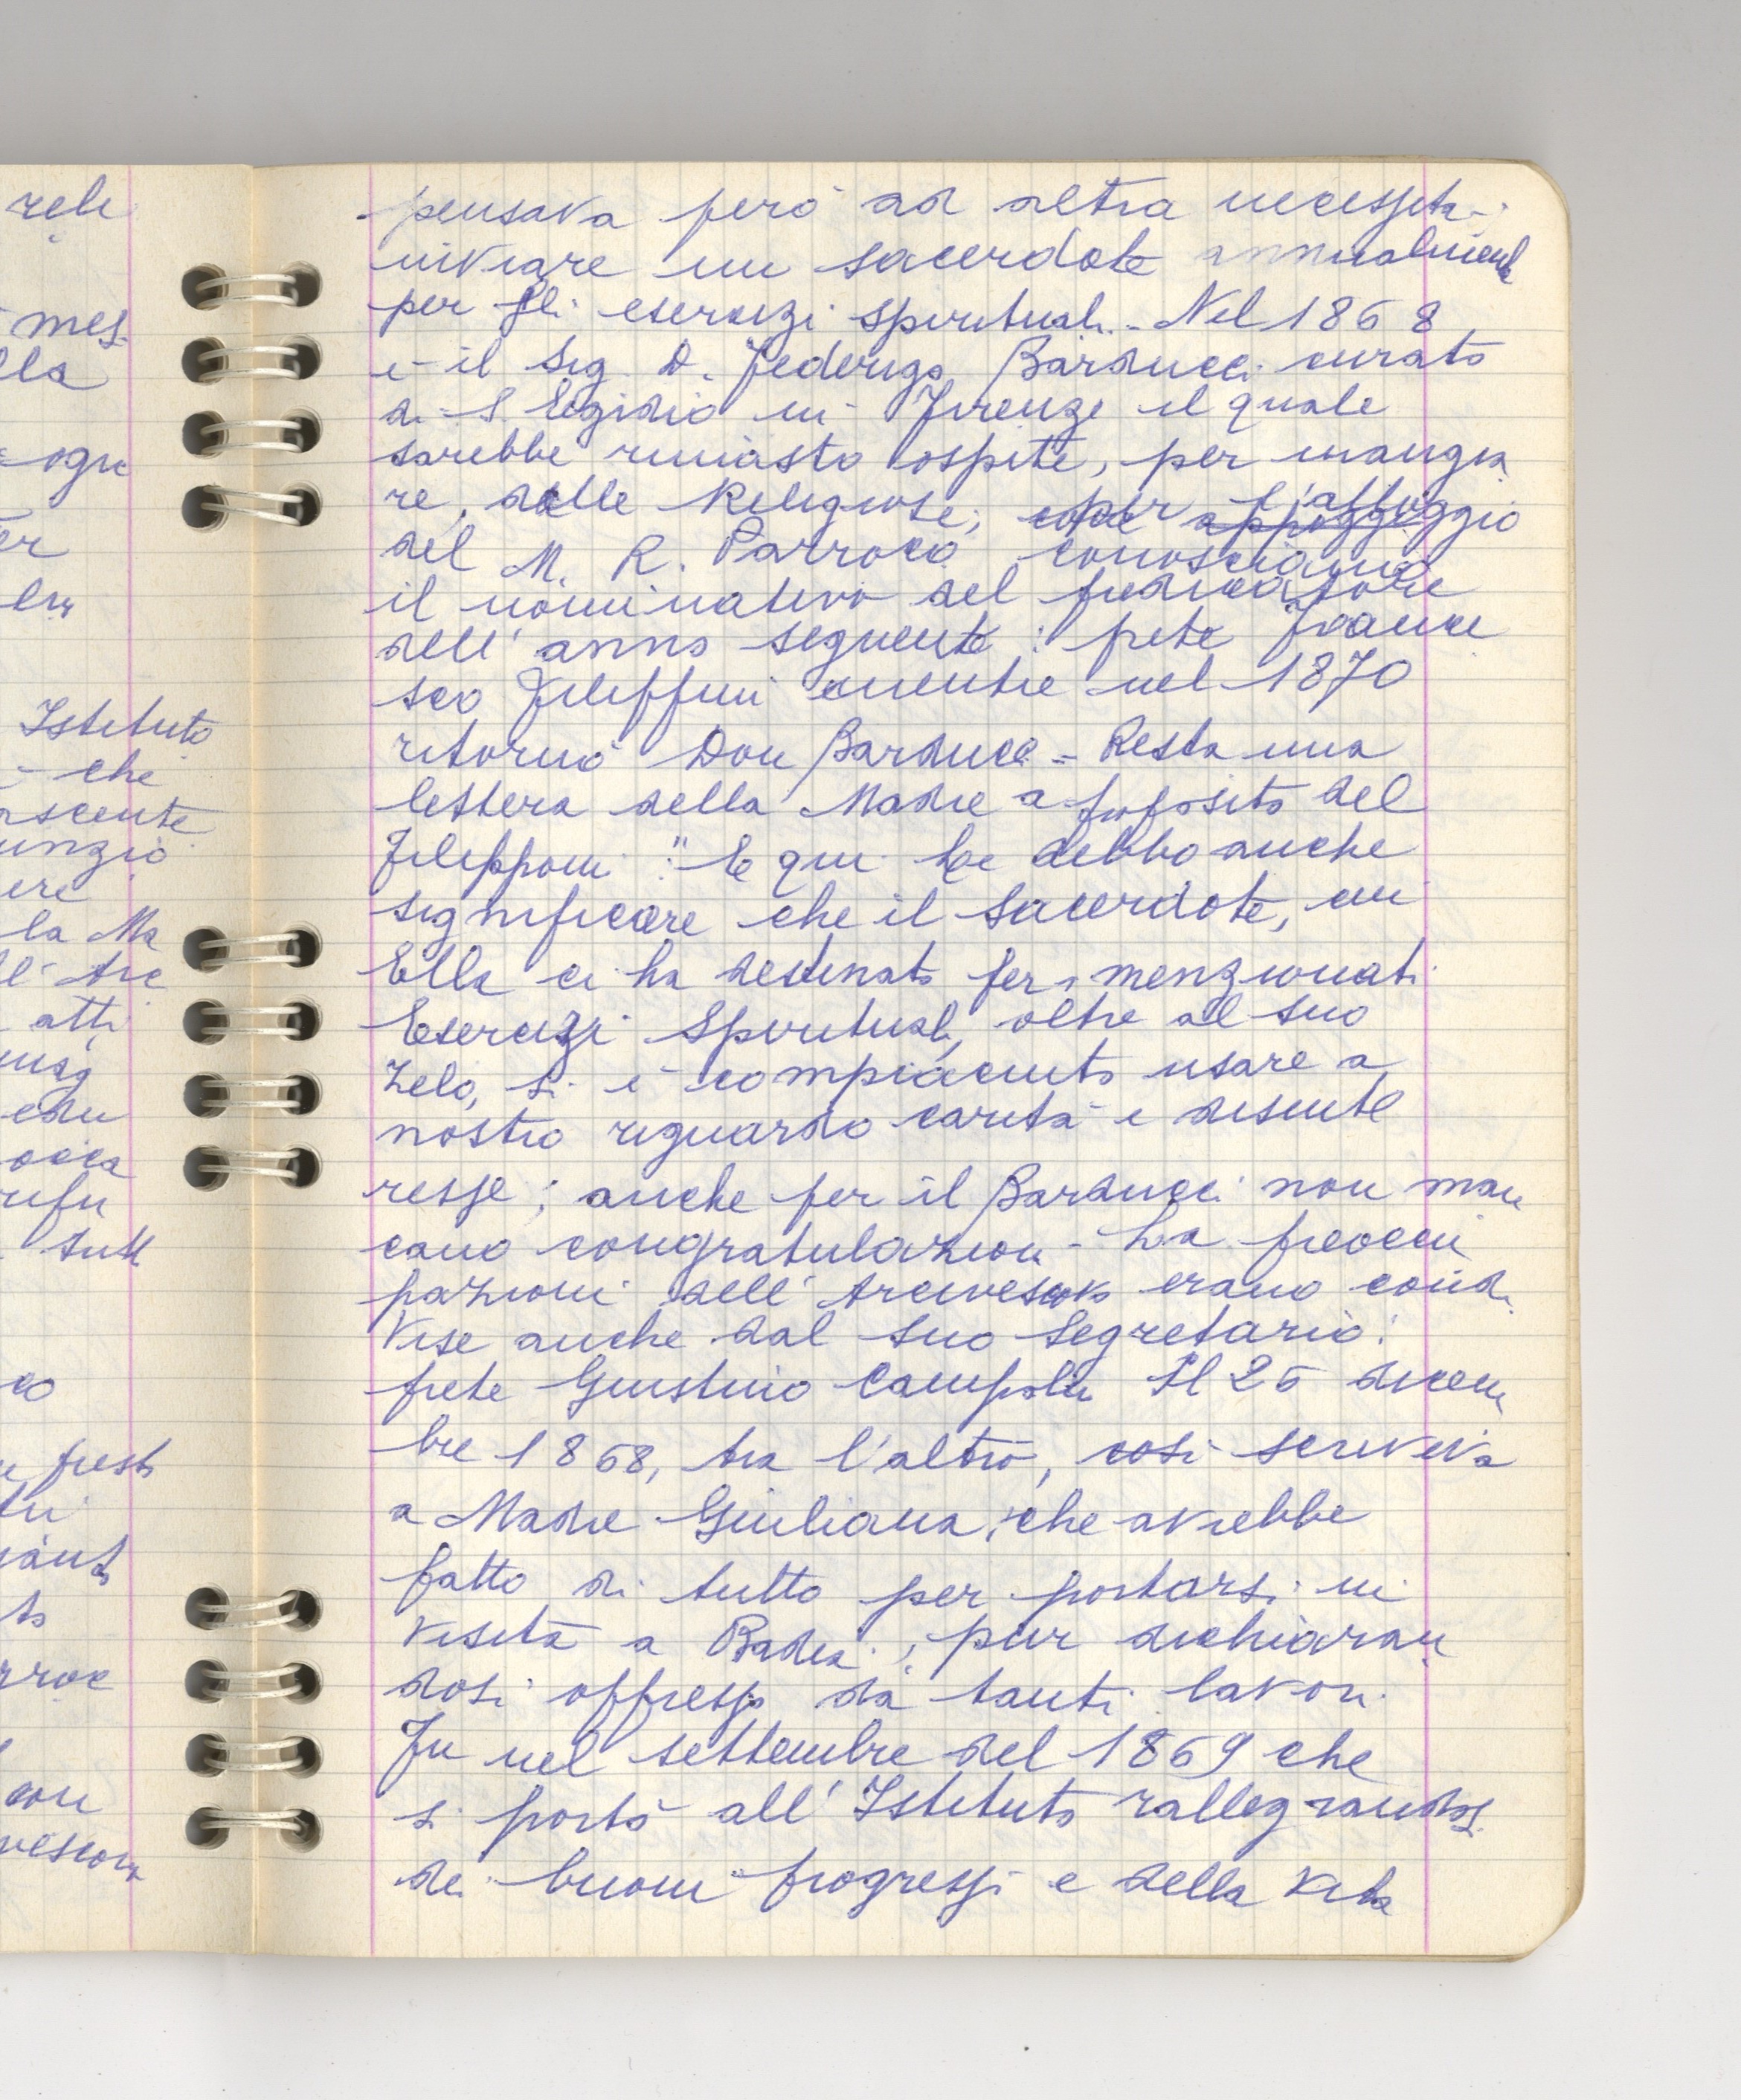 reli
mes
lla
ogni
er
Istituto
- che
ascente
unzio
ere
la Ma
ll'Arc
atti
edu
occa
tutt
co
con
vescovo
pensava però ad altra necessità:
inviare un sacerdote annualmente
per gli esercizi spirituali. Nel 1868
è il Sig. D. Federigo Barducci curato
di S. Egidio in Firenze il quale
sarebbe rimasto ospite, per mangia
re, delle Religiose; per l'alloggio
del M. R. Parroco conosciamo
il nominativo del predicatore
dell'anno seguente: prete France
sco Filipponi mentre nel 1870
ritornò Don Barducci - Resta una
lettera della Madre a proposito del
Filipponi: "E qui le debbo anche
significare che il Sacerdote, cui
Ella ci ha destinato per i menzionati
Esercizi Spirituali, oltre al suo
zelo, si è compiaciuto usare a
nostro riguardo carità e disinte
resse; anche per il Barducci non man
cano congratulazioni - La preoccu
pazioni dell'Arcivescovo erano condi
vise anche dal suo Segretario:
prete Giustino Campolmi Il 25 dicem
bre 1868, tra l'altro, così scriveva
a Madre Giuliana, che avrebbe
fatto di tutto per portarsi in
visita a Badia, pur dichiaran
dosi oppresso da tanti lavori.
Fu nel settembre del 1869 che
si portò all'Istituto rallegrandosi
dei buoni progressi e della vita